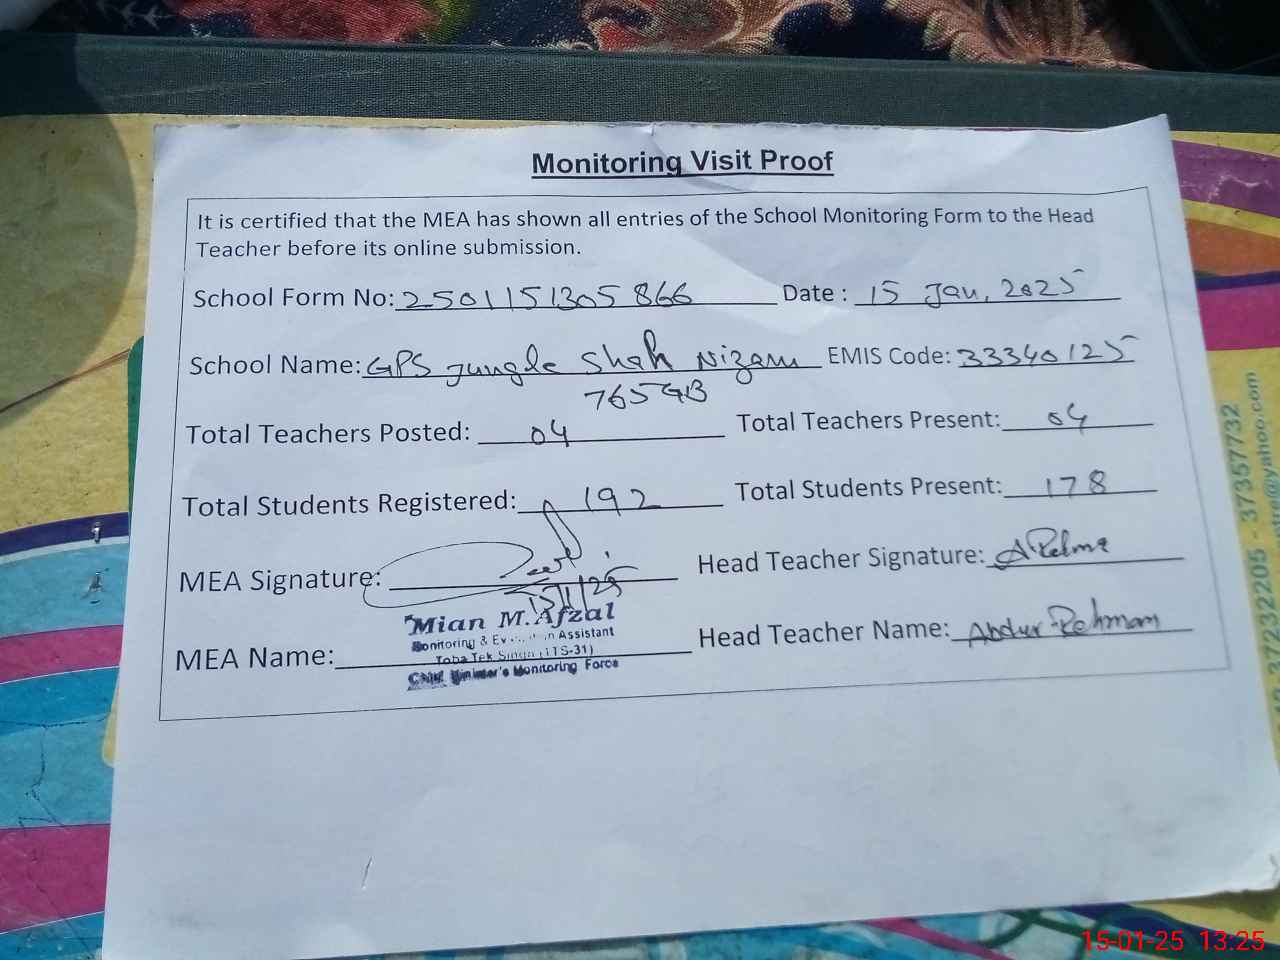 Monitoring Visit Proof
It is certified that the MEA has shown all entries of the School Monitoring Form to the Head
Teacher before its online submission.
School Form No: 2501151305866 Date : 15 Jan, 2025
School Name: GPS Jungle Shah Nizam EMIS Code: 33340125
765GB
Total Teachers Posted: 04 Total Teachers Present: 04
Total Students Registered: 192 Total Students Present: 178
MEA Signature: Head Teacher Signature: A.Rehma
15/1/25
Mian M. Afzal
Monitoring & Assistant
Toba Tek Singh (TTS-31)
Chief Minister's Monitoring Force
MEA Name: Head Teacher Name: Abdur Rehman
37232205 - 37357732
@yahoo.com
15-01-25 13:25